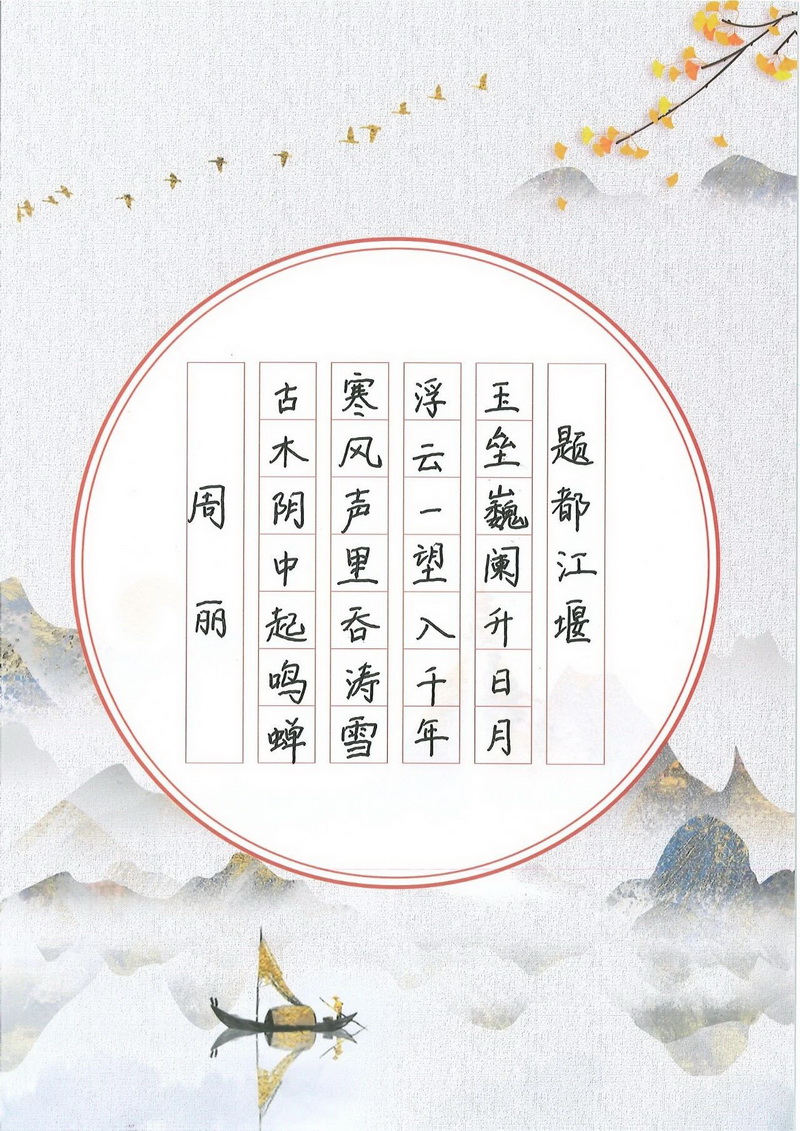 题都江堰
玉垒巍阑升日月
浮云一望入千年
寒风声里吞涛雪
古木阴中起鸣蝉
周丽